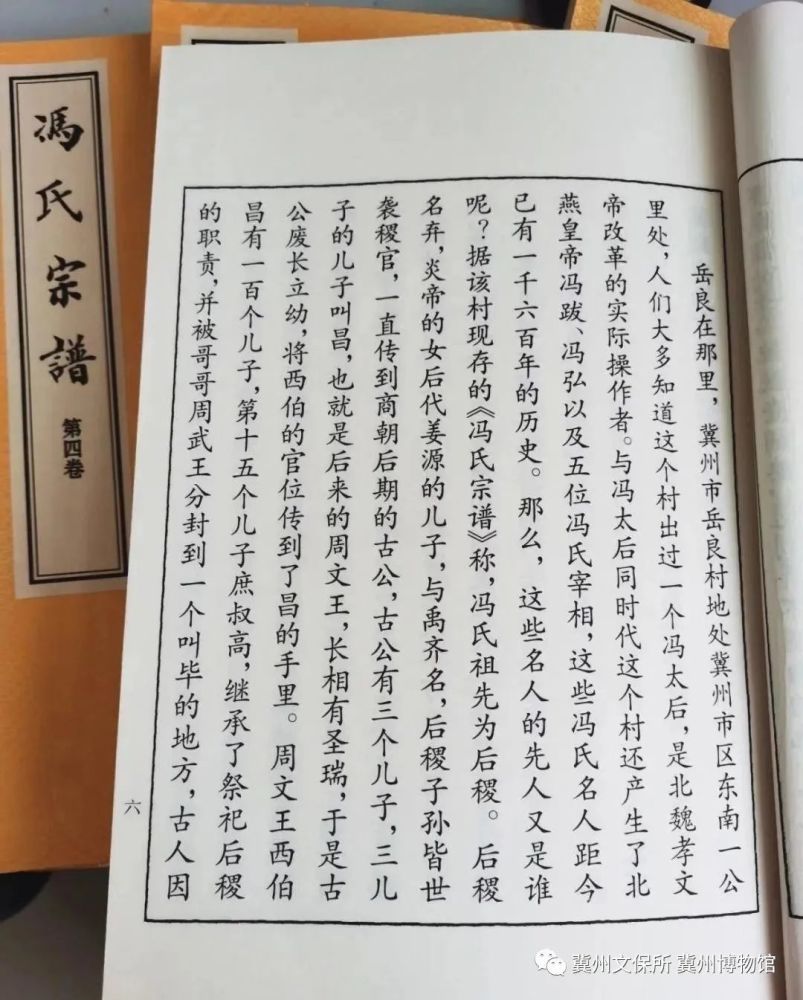 馮氏宗譜
第四卷
岳良在那里，冀州市岳良村地处冀州市区东南一公
里处，人们大多知道这个村出过一个冯太后，是北魏孝文
帝改革的实际操作者。与冯太后同时代这个村还产生了北
燕皇帝冯跋、冯弘以及五位冯氏宰相，这些冯氏名人距今
已有一千六百年的历史。那么，这些名人的先人又是谁
呢？据该村现存的《冯氏宗谱》称，冯氏祖先为后稷。后稷
名弃，炎帝的女后代姜源的儿子，与禹齐名，后稷子孙皆世
袭稷官，一直传到商朝后期的古公，古公有三个儿子，三儿
子的儿子叫昌，也就是后来的周文王，长相有圣瑞，于是古
公废长立幼，将西伯的官位传到了昌的手里。周文王西伯
昌有一百个儿子，第十五个儿子庶叔高，继承了祭祀后稷
的职责，并被哥哥周武王分封到一个叫毕的地方，古人因
六
冀州文保所 冀州博物馆